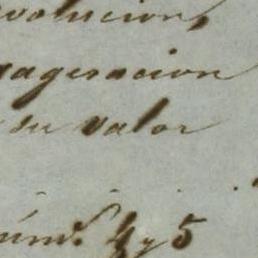 evolucion,
xageracion
su valor
núm.º 4 y 5